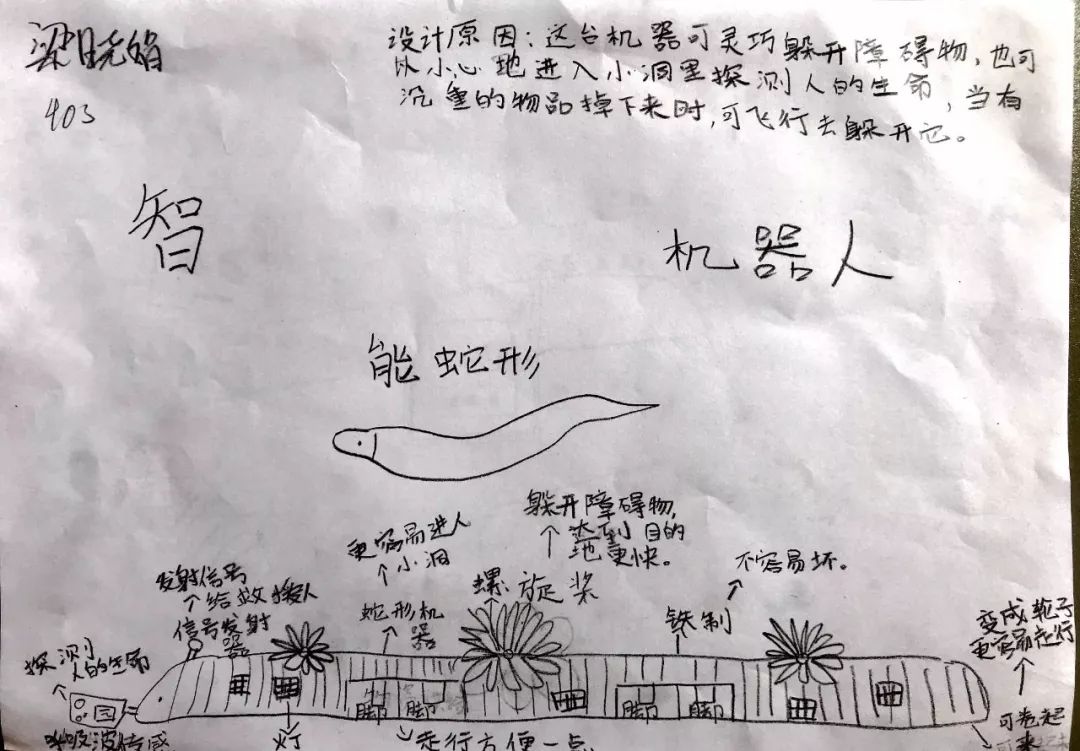 梁晓娟
403
设计原因：这台机器可灵巧躲开障碍物，也可
以小心地进入小洞里探测人的生命，当有
沉重的物品掉下来时，可飞行去躲开它。
智
机器人
能蛇形
躲开障碍物，
达到目的
地更快。
更容易进入
小洞
不容易坏。
发射信号
给救援人
信号发射
器
蛇形机
器
螺旋桨
铁制
变成轮子
更容易走行
探测
人的生命
脚
脚
脚
脚
呼吸波传感
灯
走行方便一点。
可卷起
来